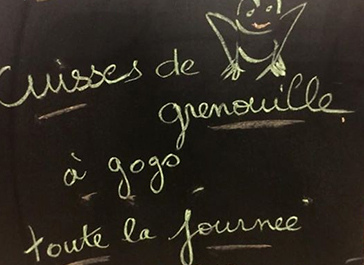 Cuisses de
grenouille
à gogo
toute la journée